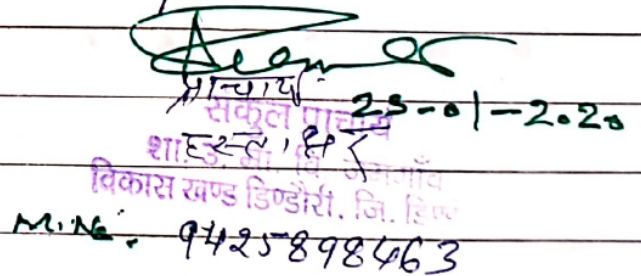 प्राचार्य
संकुल प्राचार्य 25-01-2020
हस्ताक्षर
शा. उ. मा. वि.
विकास खण्ड डिण्डौरी. जि.
M.No. 9425898463